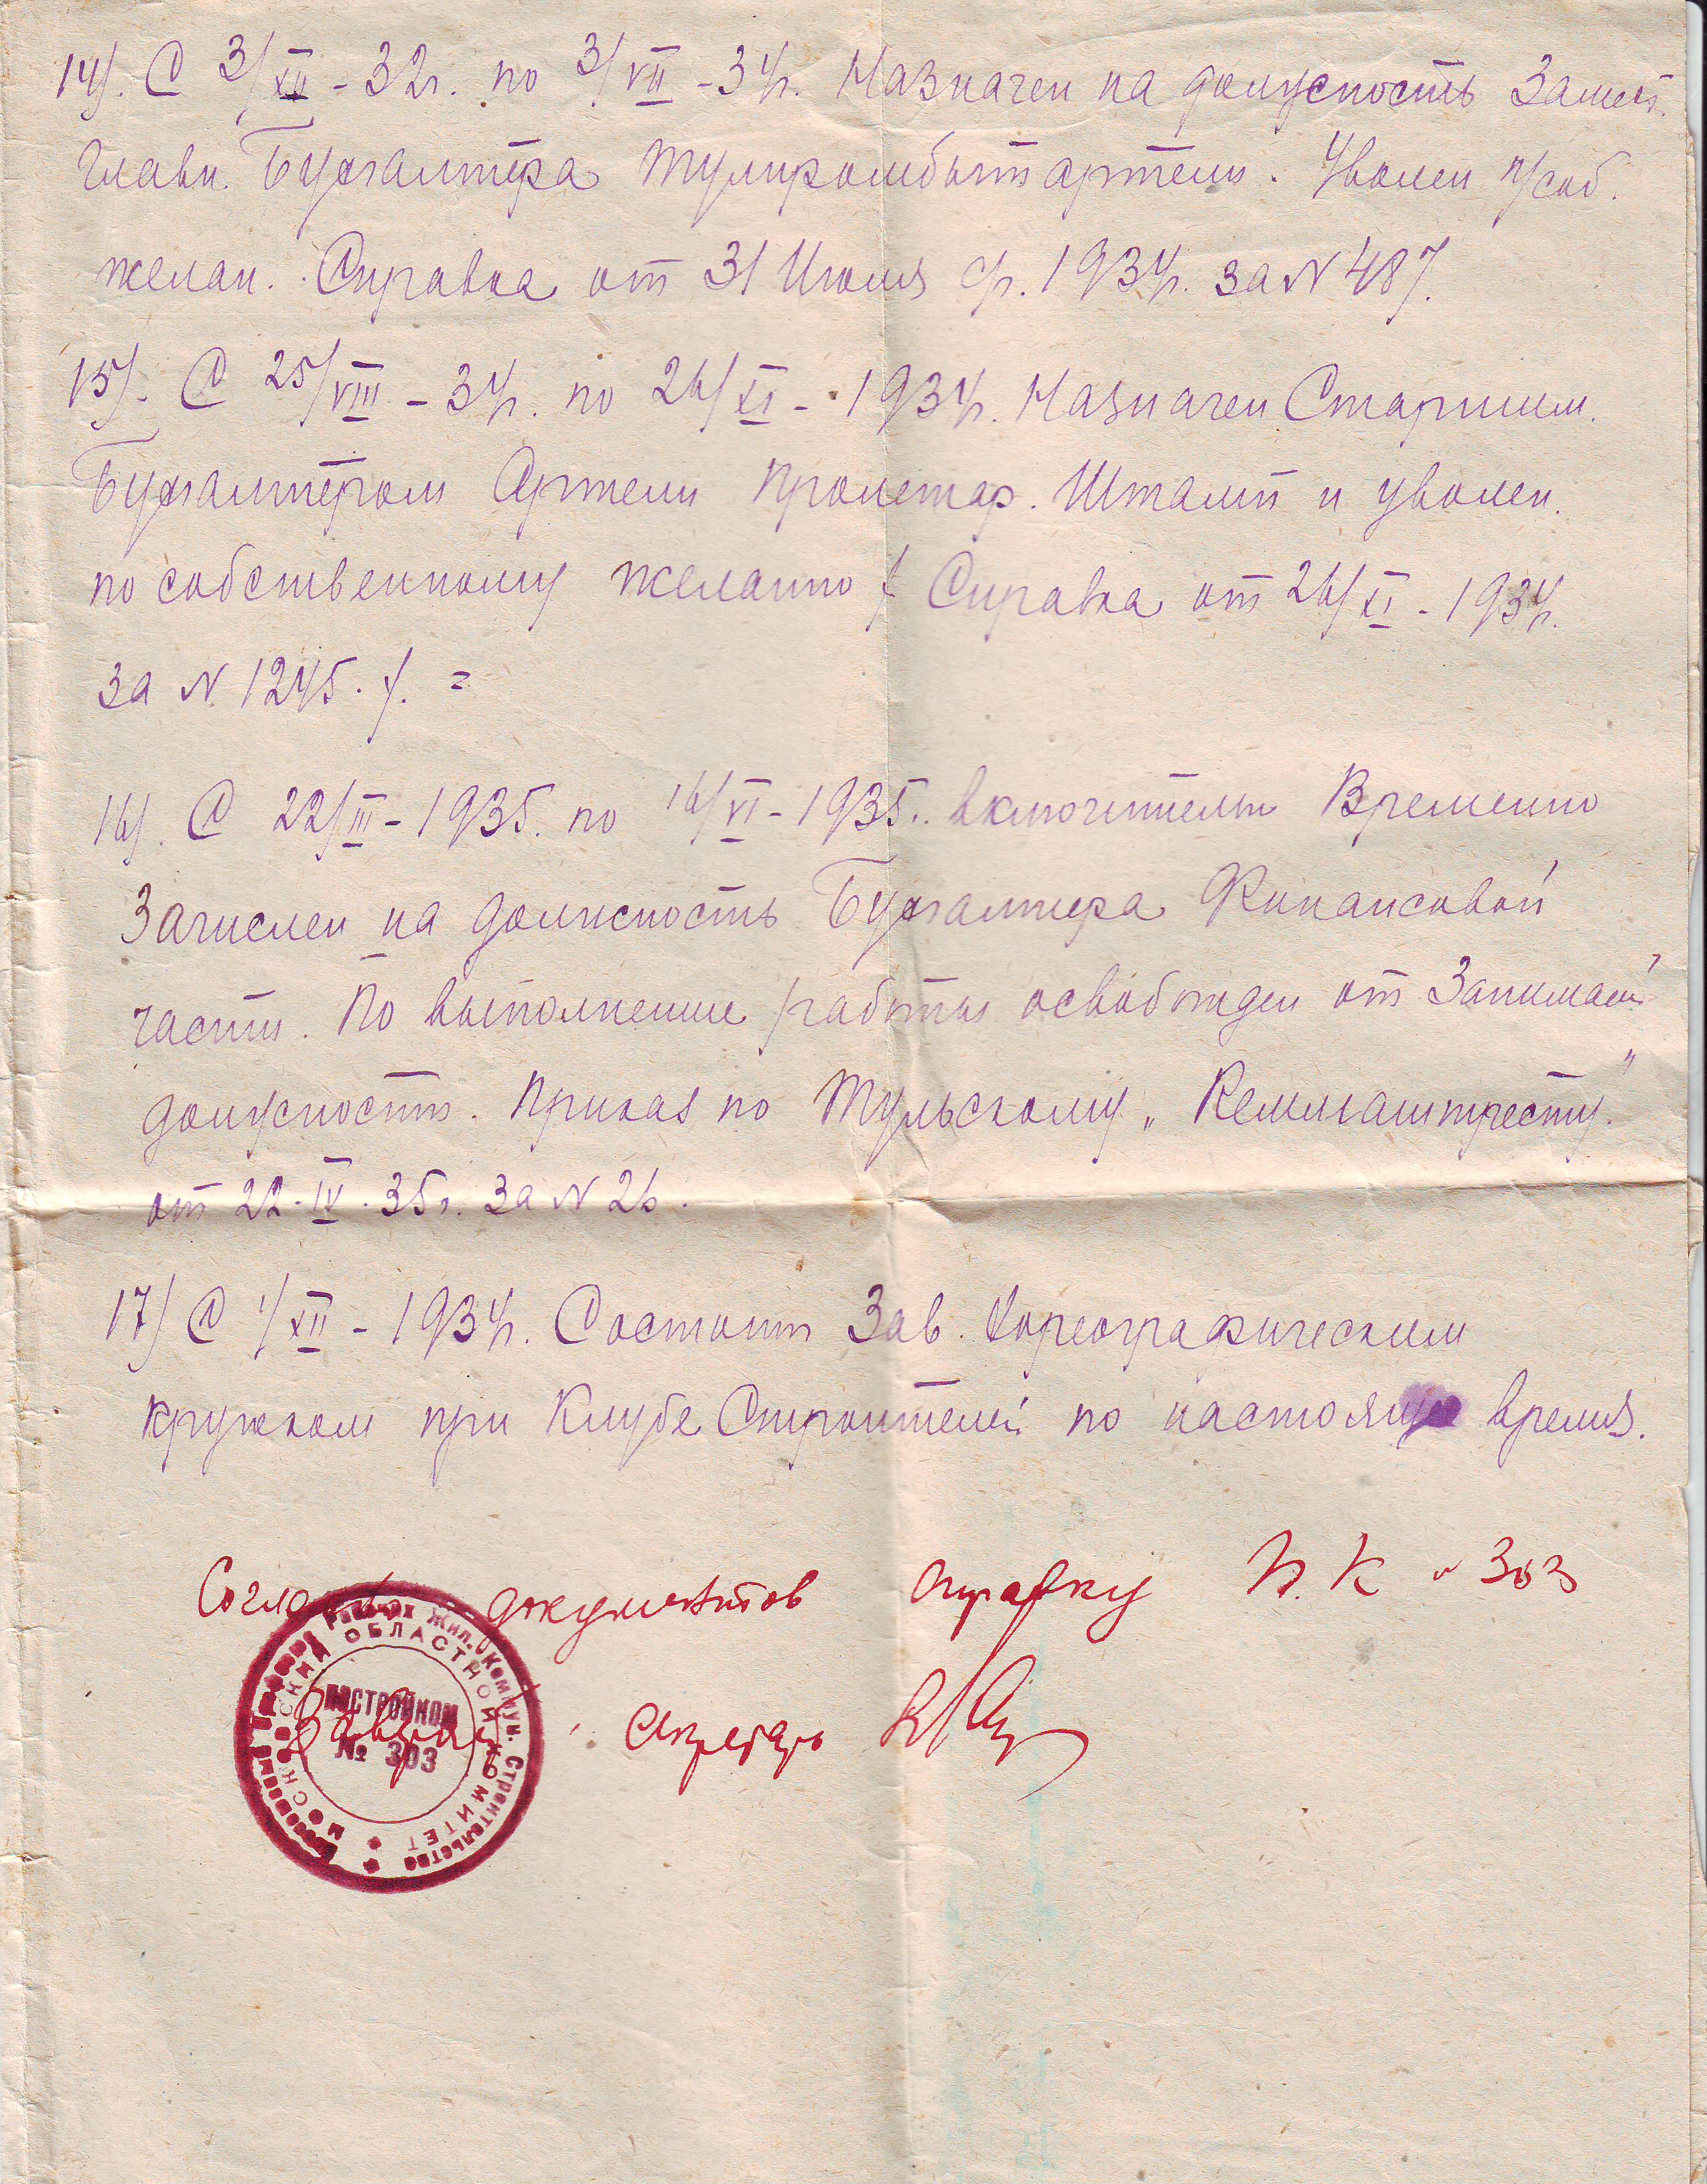 14/. С 3/XII - 32г. по 3/VII - 34г. Назначен на должность Замест.
Главн. Бухгалтера Тулпромбытартели. Уволен п/соб.
желан. Справка от 31 Июля 1934г. за N 487.
15/. С 25/VIII - 34г. по 26/XI - 1934г. Назначен Старшим.
Бухгалтером Артели Пролетар. Штамп и уволен.
по собственному желанию / Справка от 26/XI - 1934г.
за N 1245. /. =
16/. С 22/III - 1935. по 16/VI - 1935г. включительн Временно
Зачислен на должность Бухгалтера Финансовой
части. По выполнение работы освобожден от Занимаем
должност. Приказ по Тульскому „Реммаштресту."
от 22.IV.35г. за N 26.
17/ С 1/XII - 1934г. Состоит Зав. Хореографическим
кружком при Клубе Строителей по настоящее время.
Согласно документов справку П.К N 303
Заверяю. Секретарь
Рабочих Жил. Коммун. Строительства
МОСКОВСКИЙ ОБЛАСТНОЙ КОМИТЕТ
ПОСТРОЙКОМ
№ 303